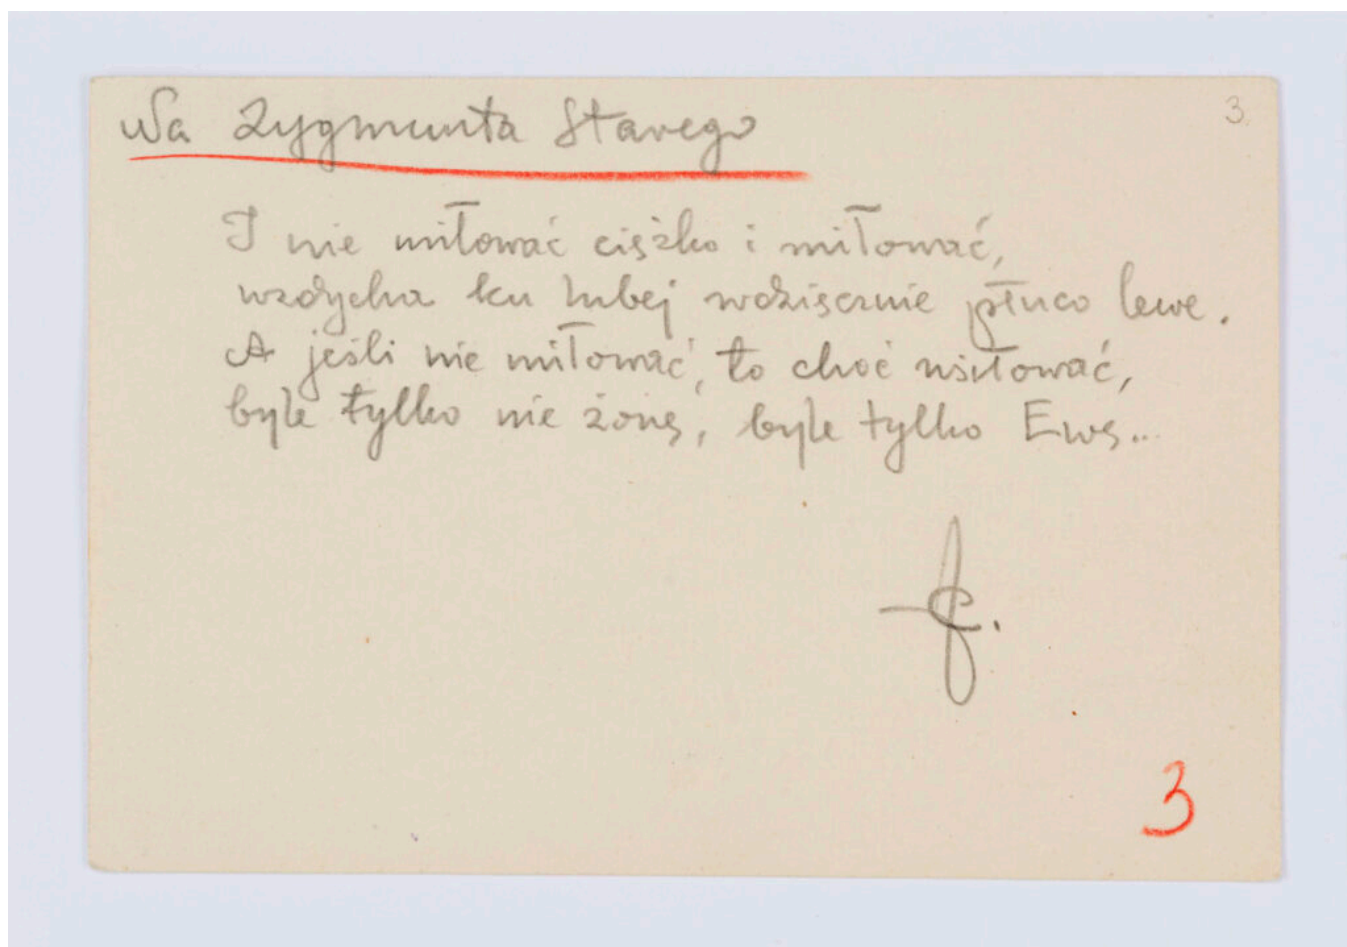 3.
Na Zygmunta Starego
I nie miłować ciężko i miłować,
wzdycha ku lubej wdzięcznie płuco lewe.
A jeśli nie miłować, to choć usiłować,
byle tylko nie żonę, byle tylko Ewę..
3